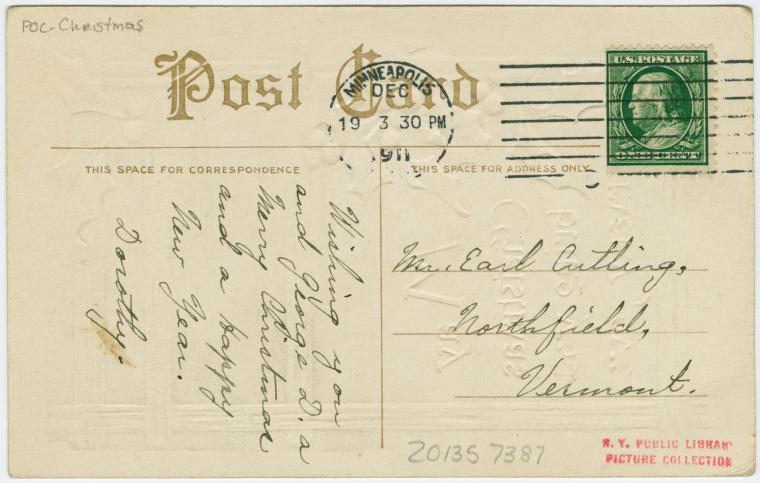 POC-Christmas
Post Card
MINNEAPOLIS
DEC
19 3 30 PM
1911
U.S. POSTAGE
ONE CENT
THIS SPACE FOR CORRESPONDENCE
THIS SPACE FOR ADDRESS ONLY
Wishing you
and George D. a
Merry Christmas
and a Happy
New Year.
Dorothy.
Mr. Earl Cutting,
Northfield,
Vermont.
201357387
N. Y. PUBLIC LIBRARY
PICTURE COLLECTION